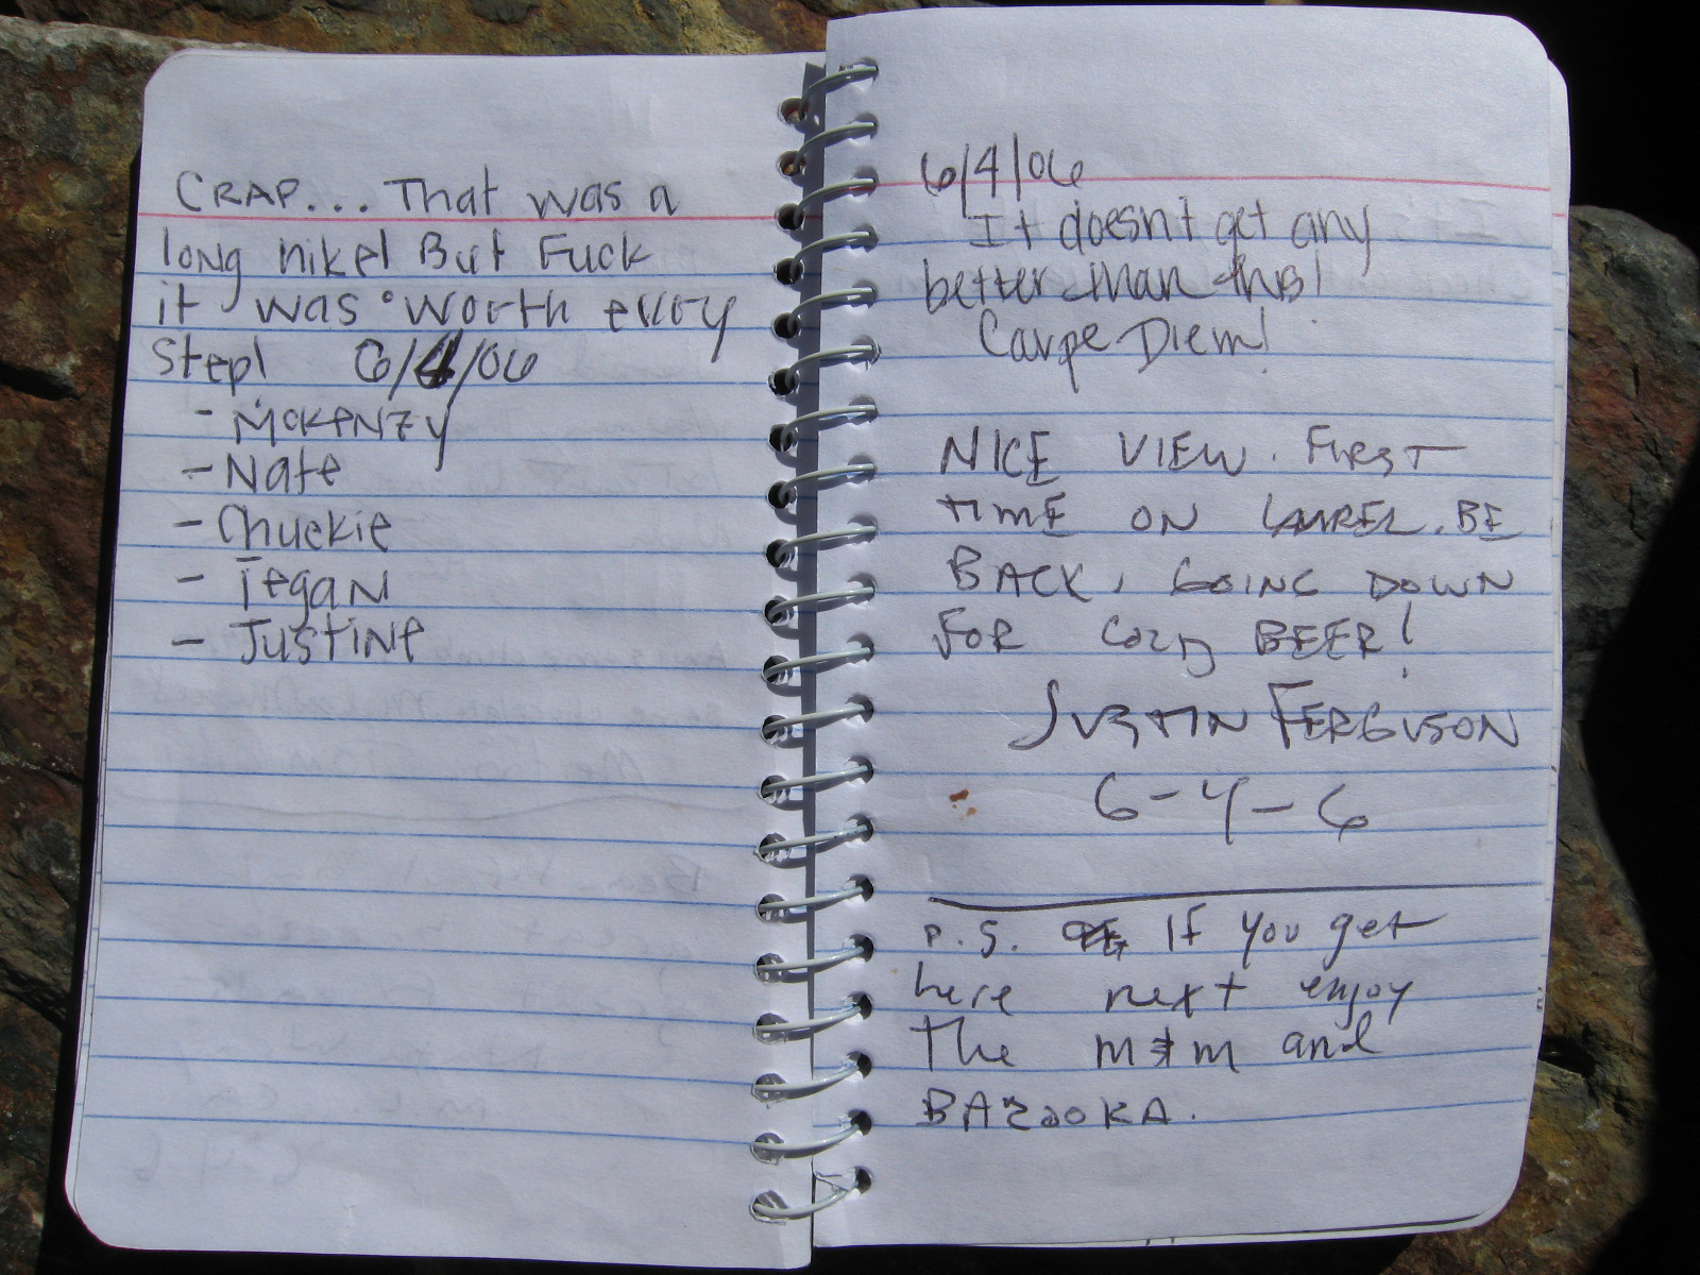 CRAP... That was a
long hike! But Fuck
it was worth every
Step! 6/4/06
- McKenzy
- Nate
- Chuckie
- Tegan
- Justine
6/4/06
It doesn't get any
better than this!
Carpe Diem!
NICE VIEW. FIRST
TIME ON LAUREL. BE
BACK, GOING DOWN
FOR COLD BEER!
JUSTIN FERGUSON
6-4-6
P.S. If you get
here next enjoy
The m&m and
BAZOOKA.